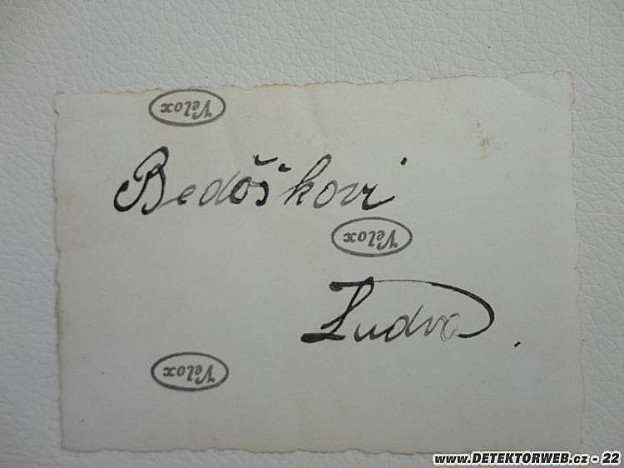 Velox
Bedöškovi
Velox
Ludva.
Velox
www.DETEKTORWEB.cz - 22